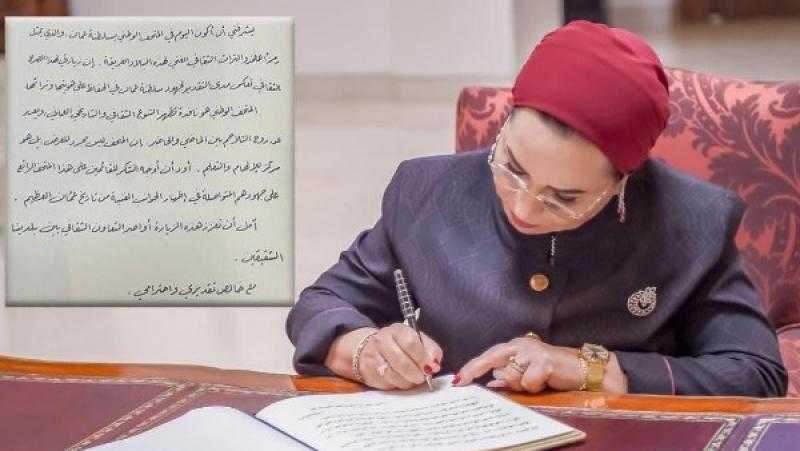 يشرفني أن أكون اليوم في المتحف الوطني بسلطنة عمان، والذي يمثل
رمزاً للتراث الثقافي الغني لهذه البلاد العريقة. إن زيارتي لهذا الصرح
الثقافي تعكس مدى التقدير لجهود سلطنة عمان في الحفاظ على هويتها وتراثها
المتحف الوطني هو نافذة تظهر التنوع الثقافي والتاريخي العماني، ويعبر
عن روح التلاحم بين الماضي والحاضر. إن المتحف ليس مجرد للعرض بل هو
مركز للإلهام والتعلم. أود أن أوجه الشكر للقائمين على هذا المتحف الرائع
على جهودهم المتواصلة في إظهار الجوانب الغنية من تاريخ عمان العظيم.
آمل أن تعزز هذه الزيارة أواصر التعاون الثقافي بين بلدينا
الشقيقين.
مع خالص تقديري واحترامي.